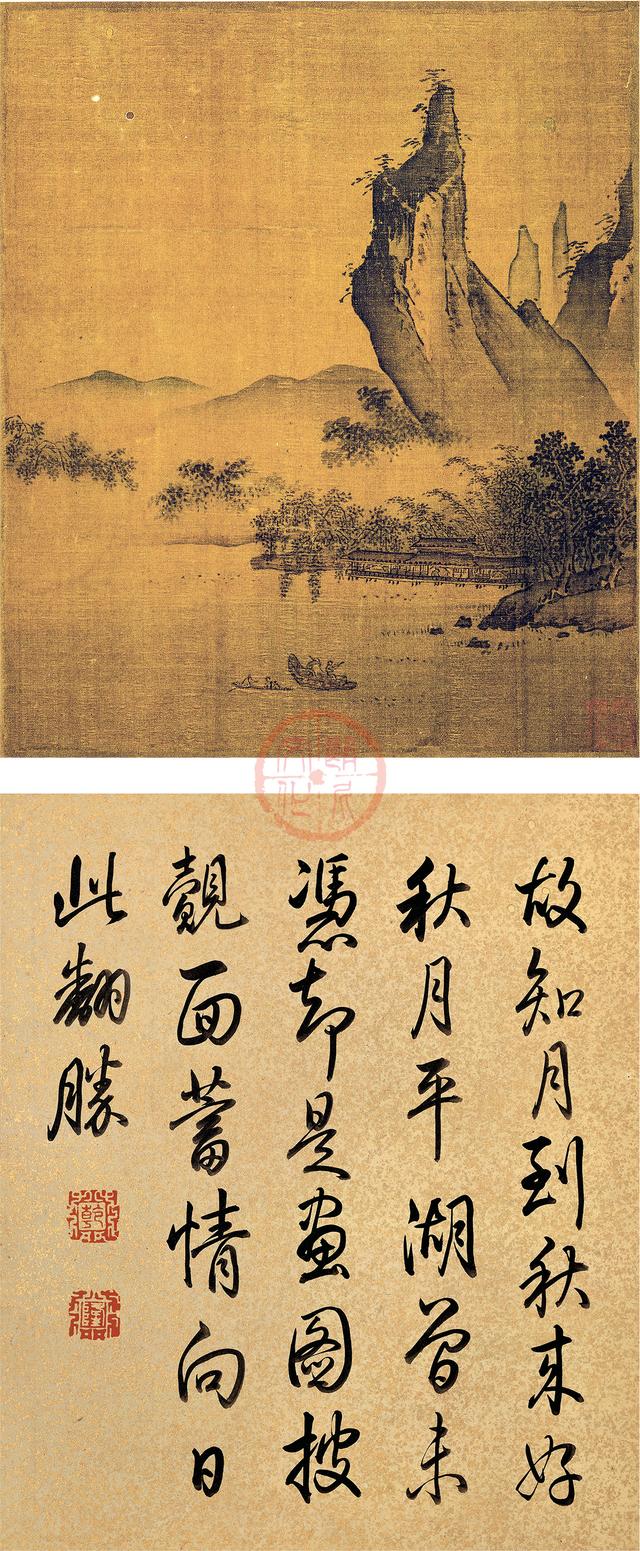 故知月到秋来好
秋月平湖曾未
憑却是畫圖披
覿面蓄情向日
此翻勝
乾
隆